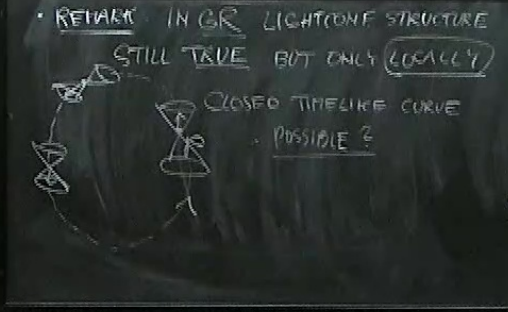 · REMARK IN GR LIGHTCONE STRUCTURE
STILL TRUE BUT ONLY LOCALLY
CLOSED TIMELIKE CURVE
POSSIBLE ?